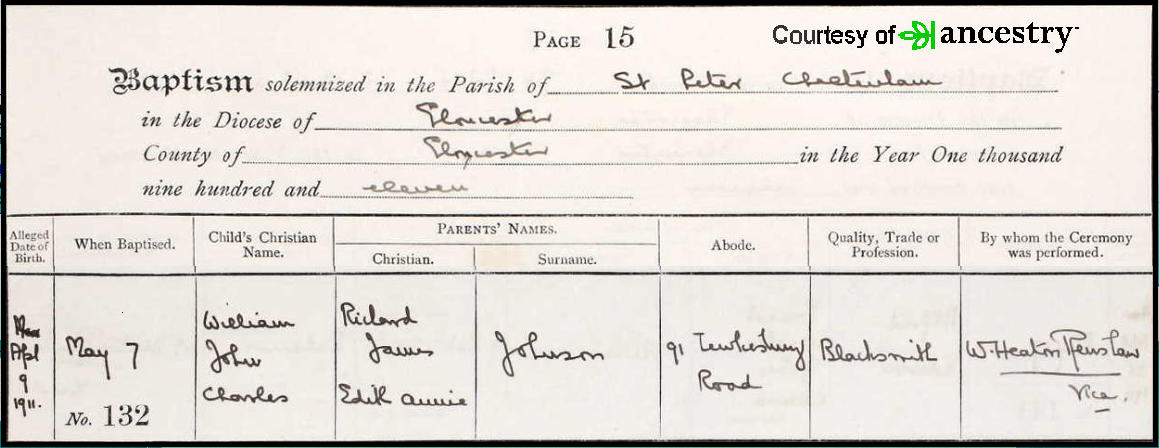 PAGE 15
Courtesy of ancestry
Baptism solemnized in the Parish of St Peter Cheltenham
in the Diocese of Gloucester
County of Gloucester in the Year One thousand
nine hundred and eleven
Alleged Date of Birth.
When Baptised.
Child's Christian Name.
PARENTS' NAMES.
Christian.
Surname.
Abode.
Quality, Trade or Profession.
By whom the Ceremony was performed.
April
9
1911.
May 7
No. 132
William
John
Charles
Richard
James
Edith Annie
Johnson
91 Tewkesbury
Road
Blacksmith
W. Heaton Renshaw
Vicar